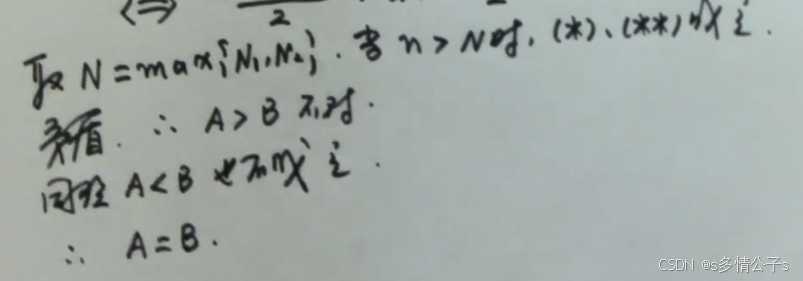 ⟺ 2
取 N=max{N₁,N₂}. 当 n>N时, (*)、(**)成立.
矛盾. ∴ A>B 不对.
同理 A<B 也不成立.
∴ A=B.
CSDN @s多情公子s